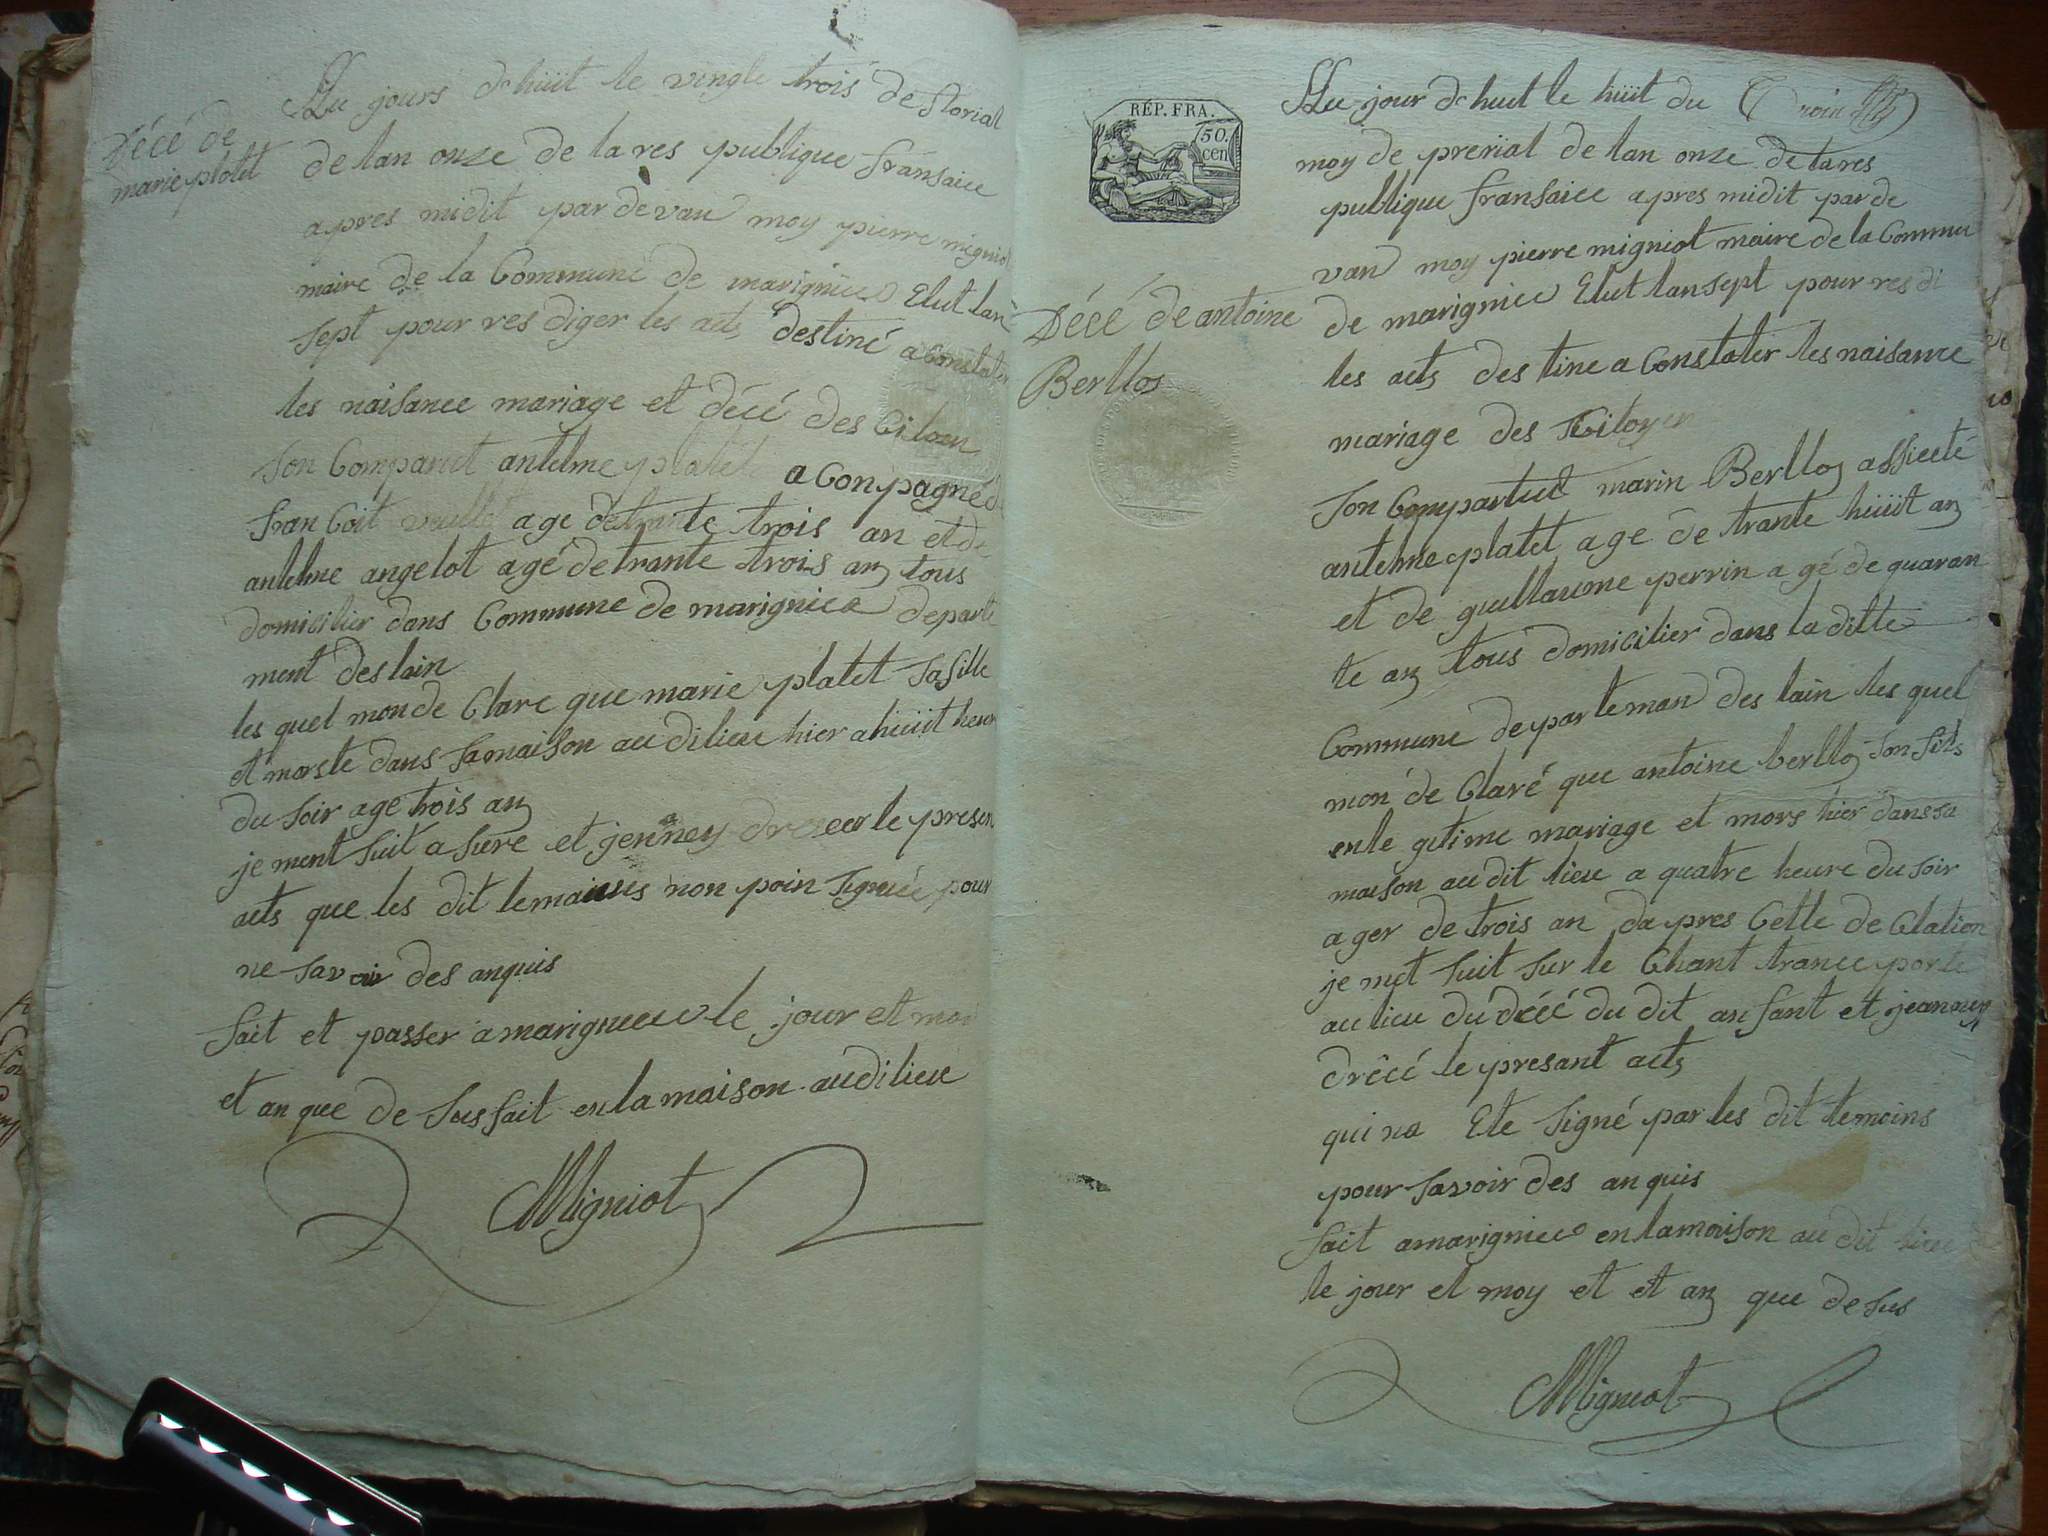 Décé de
marie platet
Au jours dhuit le vingte trois de florial
de lan onze de la res publique fransaice
apres midit par devan moy pierre migniot
maire de la Commune de marignieo Elut lan
sept pour res diger les acts destiné a Constater
les naisance mariage et décé des Citoien
Son Comparut antelme platet a Conpagné de
fran Coit veullet age detrante trois an et de
antelme angelot agé detrante trois anz tous
domicilier dans Commune de marigniea departe
ment deslain
les quel mon de Clare que marie platet Sa fille
et morste dans Samaison au dilieu hier a huiit heur
du Soir age trois anz
je ment Suit a Sure et jenney dreceer le presen
acts que les dit temains non poin Signiée pour
ne Savoir des anquis
fait et passer a marignieu le jour et moi
et an que de Sus fait en la maison audilieu
Migniot
RÉP. FRA.
50.
cen
Décé de antoine
Berlloz
Au jour dhuit le hüit du
moy de prerial de lan onze de la res
publique fransaice apres midit par de
van moy pierre migniot maire de la Commu
de marigniee Elut lan sept pour res di
les acts des tine a Constater les naisance
mariage des Citoyen
Son Compartut marin Berlloz assisté
antelme platet age de trante hüiit anz
et de guillaume perrin a gé de quaran
te anz tous domicilier dans la ditte
Commune departeman des lain les quel
mon de Claré que antoine berlloz Son fils
en le gitime mariage et mors hier dans sa
maison au dit lieu a quatre heure du Soir
a ger de trois an da pres Cette de Clation
je met Suit Sur le Chant tranceporte
au lieu du décé du dit anfant et jeanney
drêcé le presant acts
qui na Ete Signé par les dit temoins
pour Savoir des anquis
fait a marignieo en la maison au dit lieu
le jour et moy et et anz que de Sus
Migniot